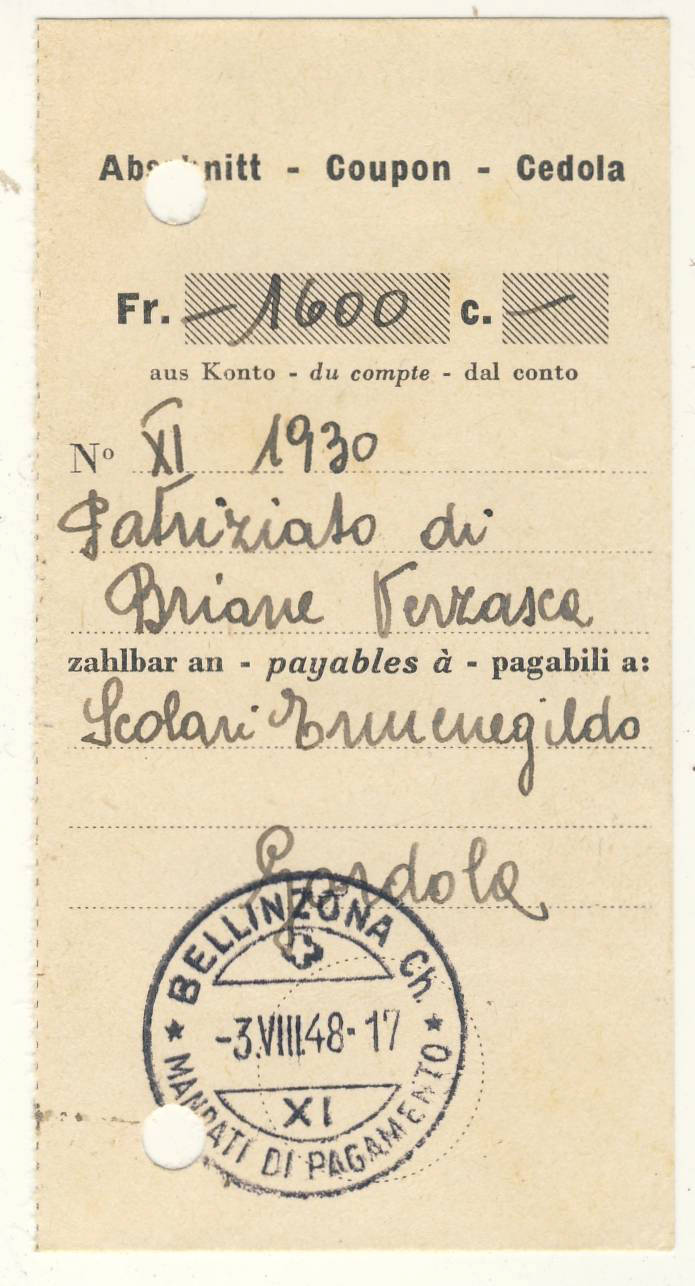 Abschnitt - Coupon - Cedola
Fr. - 1600 c. -
aus Konto - du compte - dal conto
No XI 1930
Patriziato di
Brione Verzasca
zahlbar an - payables à - pagabili a:
Scolari Ermenegildo
Gordola
BELLINZONA Ch.
-3.VIII.48-17
XI
MANDATI DI PAGAMENTO